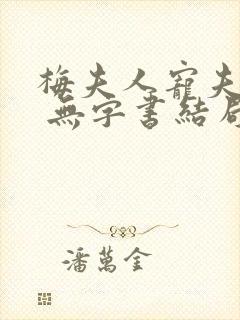 梅夫人寵夫
無字書結局
潘萬金